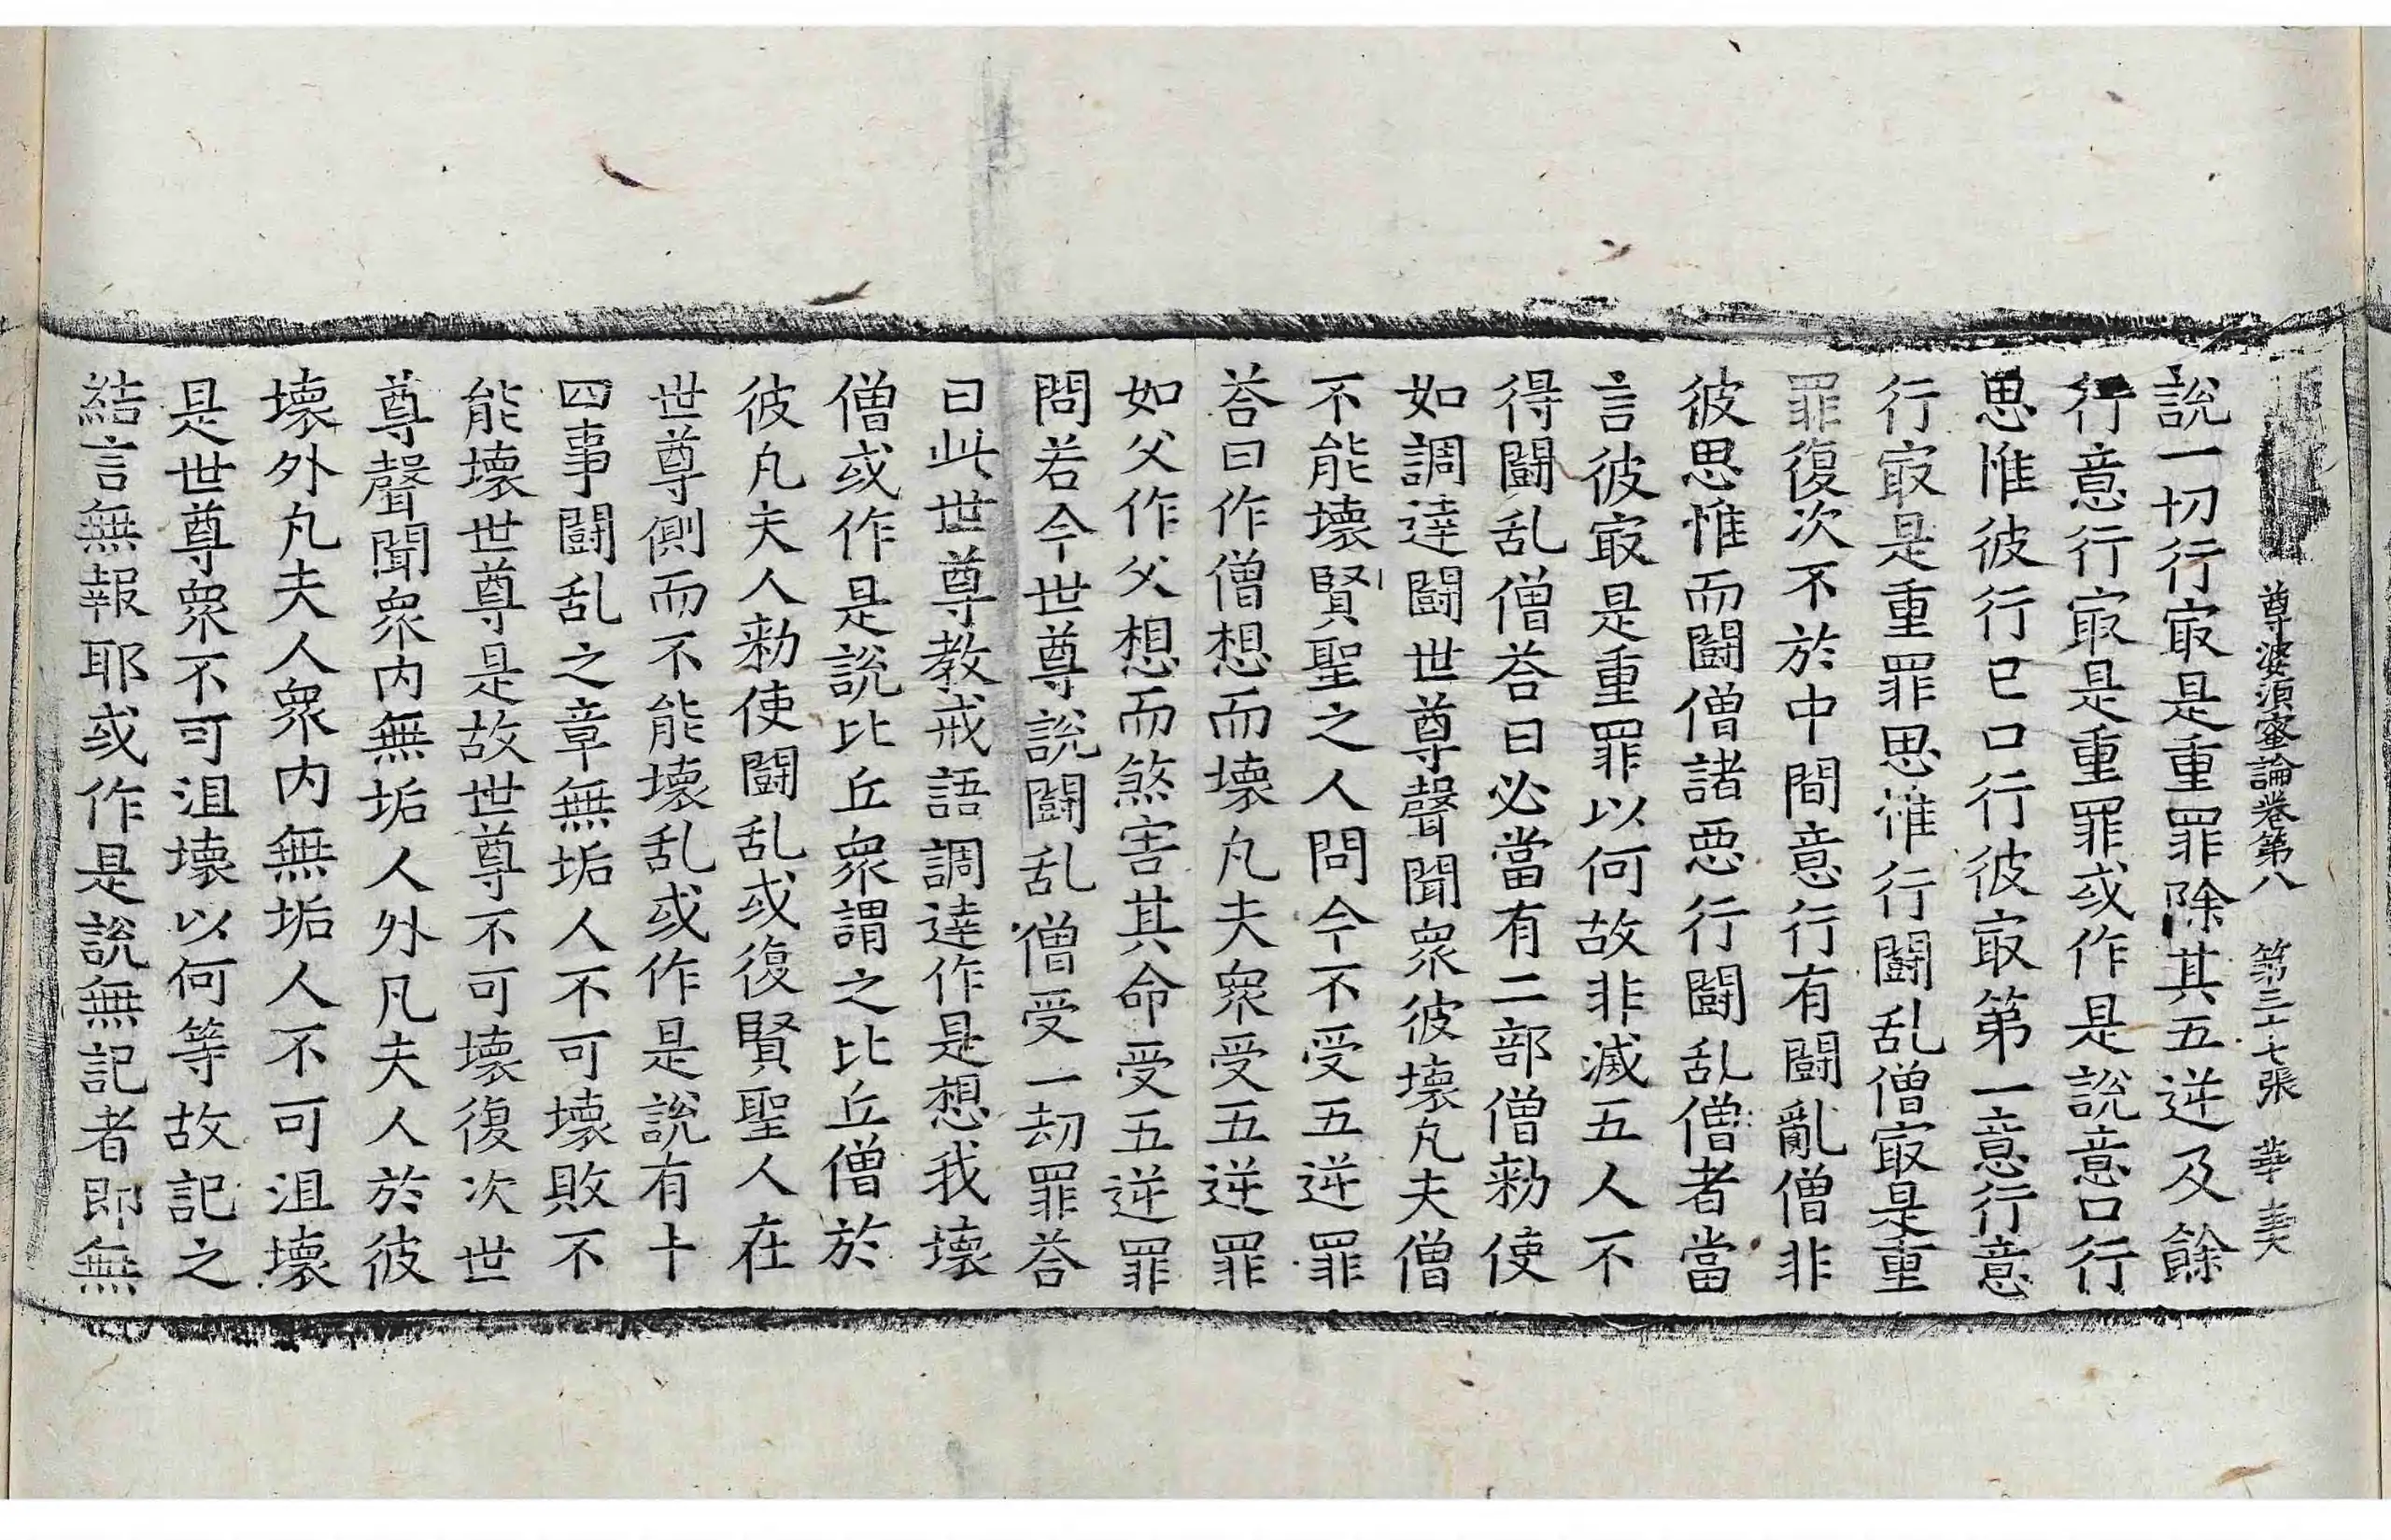 尊婆須蜜論卷第八　第三十七張　華
說一切行㝡是重罪除其五逆及餘
行意行㝡是重罪或作是說意口行
思惟彼行已口行彼㝡第一意行意
行㝡是重罪思惟行鬪乱僧㝡是重
罪復次不於中間意行有鬪亂僧非
彼思惟而鬪僧諸惡行鬪乱僧者當
言彼㝡是重罪以何故非滅五人不
得鬪乱僧荅曰必當有二部僧勑使
如調達鬪世尊聲聞衆彼壞凡夫僧
不能壞賢聖之人問今不受五逆罪
荅曰作僧想而壞凡夫衆受五逆罪
如父作父想而煞害其命受五逆罪
問若今世尊說鬪乱僧受一劫罪荅
曰此世尊教戒語調達作是想我壞
僧或作是說比丘衆謂之比丘僧於
彼凡夫人勑使鬪乱或復賢聖人在
世尊側而不能壞乱或作是說有十
四事鬪乱之章無垢人不可壞敗不
能壞世尊是故世尊不可壞復次世
尊聲聞衆内無垢人外凡夫人於彼
壞外凡夫人衆内無垢人不可沮壞
是世尊衆不可沮壞以何等故記之
結言無報耶或作是說無記者即無